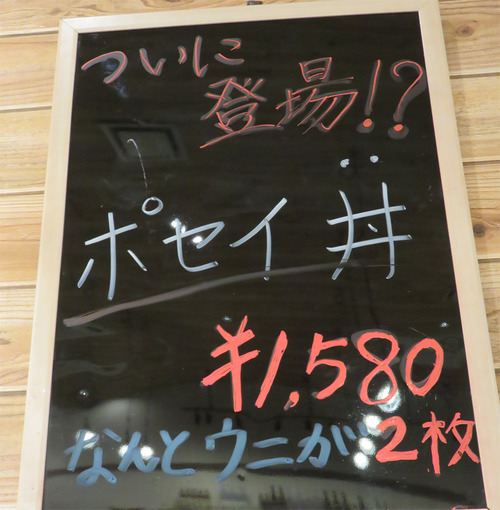 ついに
登場!?
ポセイ丼
¥1,580
なんとウニが2枚